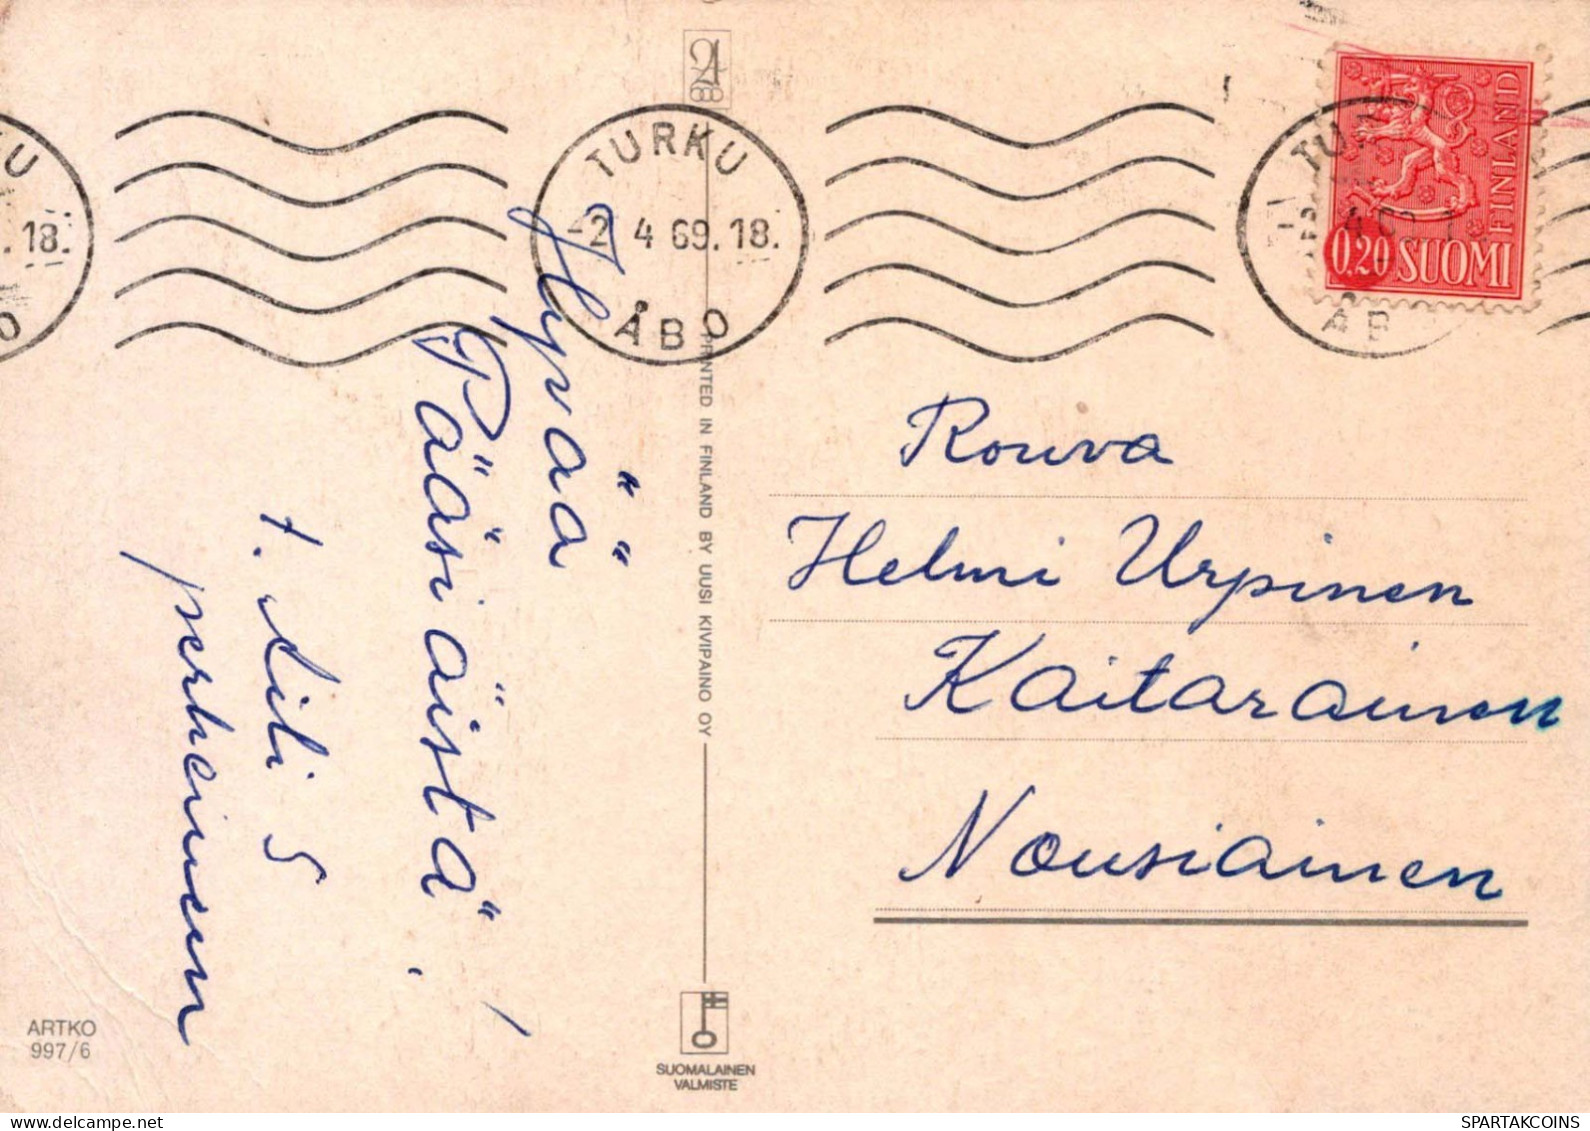 TURKU
-2. 4 69. 18.
ÅBO
. 18.
FINLAND
0,20 SUOMI
Hyvää
Pääsiäistä!
t. Lili S
perheineen
PRINTED IN FINLAND BY UUSI KIVIPAINO OY
Rouva
Helmi Urpinen
Kaitarainen
Nousiainen
ARTKO
997/6
SUOMALAINEN
VALMISTE
SPARTAKCOINS